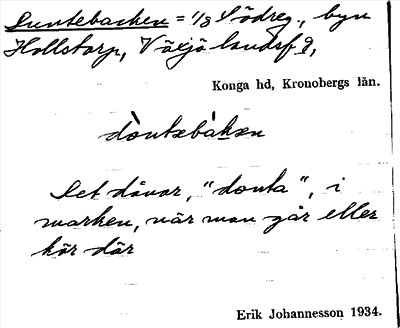 Duntebacken = 1/8 Södreg., byn
Hollstorp, Växjö landsf 9,
Konga hd, Kronobergs län.
dòuntebàkæn
Det dånar, "donta", i
marken, när man går eller
kör där
Erik Johannesson 1934.